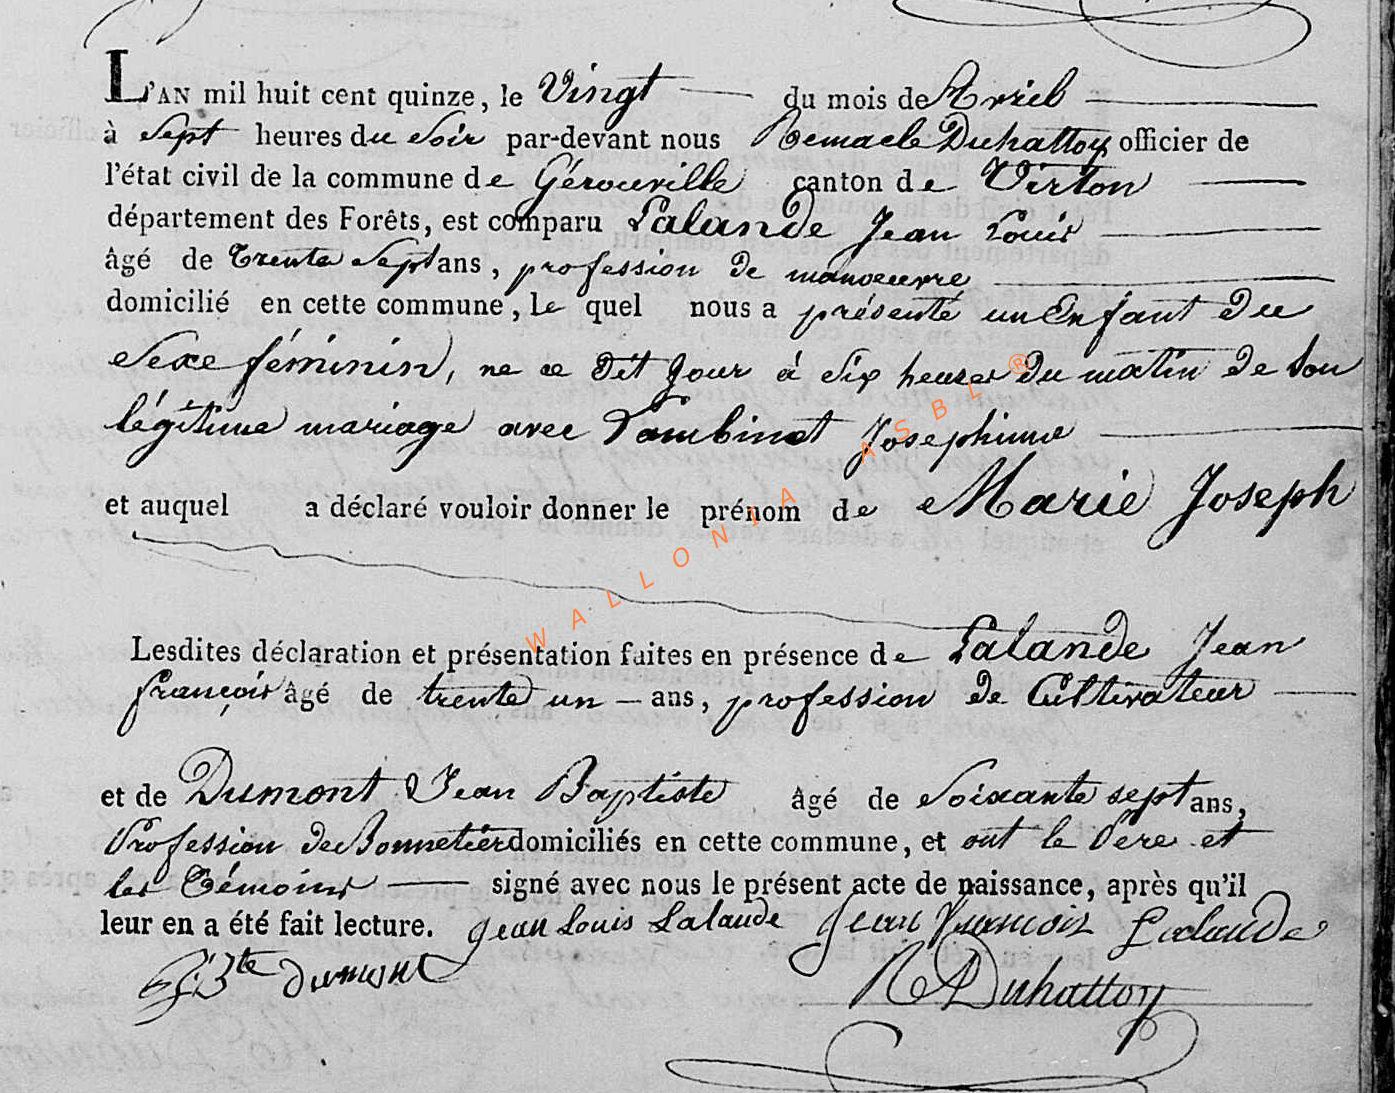 L'AN mil huit cent quinze, le Vingt du mois de Avril
à Sept heures du Soir par-devant nous Remacle Duhattoy officier de
l'état civil de la commune de Gérouville canton de Virton
département des Forêts, est comparu Lalande Jean Louis
âgé de trente Sept ans, profession de manoeuvre
domicilié en cette commune, le quel nous a présenté un Enfant du
Sexe féminin, né ce dit Jour à Six heures du matin de Son
légitime mariage avec Lambinet Josephinne
et auquel a déclaré vouloir donner le prénom de Marie Joseph
Lesdites déclaration et présentation faites en présence de Lalande Jean
françois âgé de trente un ans, profession de Cultivateur
et de Dumont Jean Baptiste âgé de Soixante sept ans,
Profession de Bonnetier domiciliés en cette commune, et ont le Père et
les Témoins signé avec nous le présent acte de naissance, après qu'il
leur en a été fait lecture. Jean Louis Lalande Jean François Lalande
J Bte Dumont R Duhattoy
WALLONIA ASBL ®